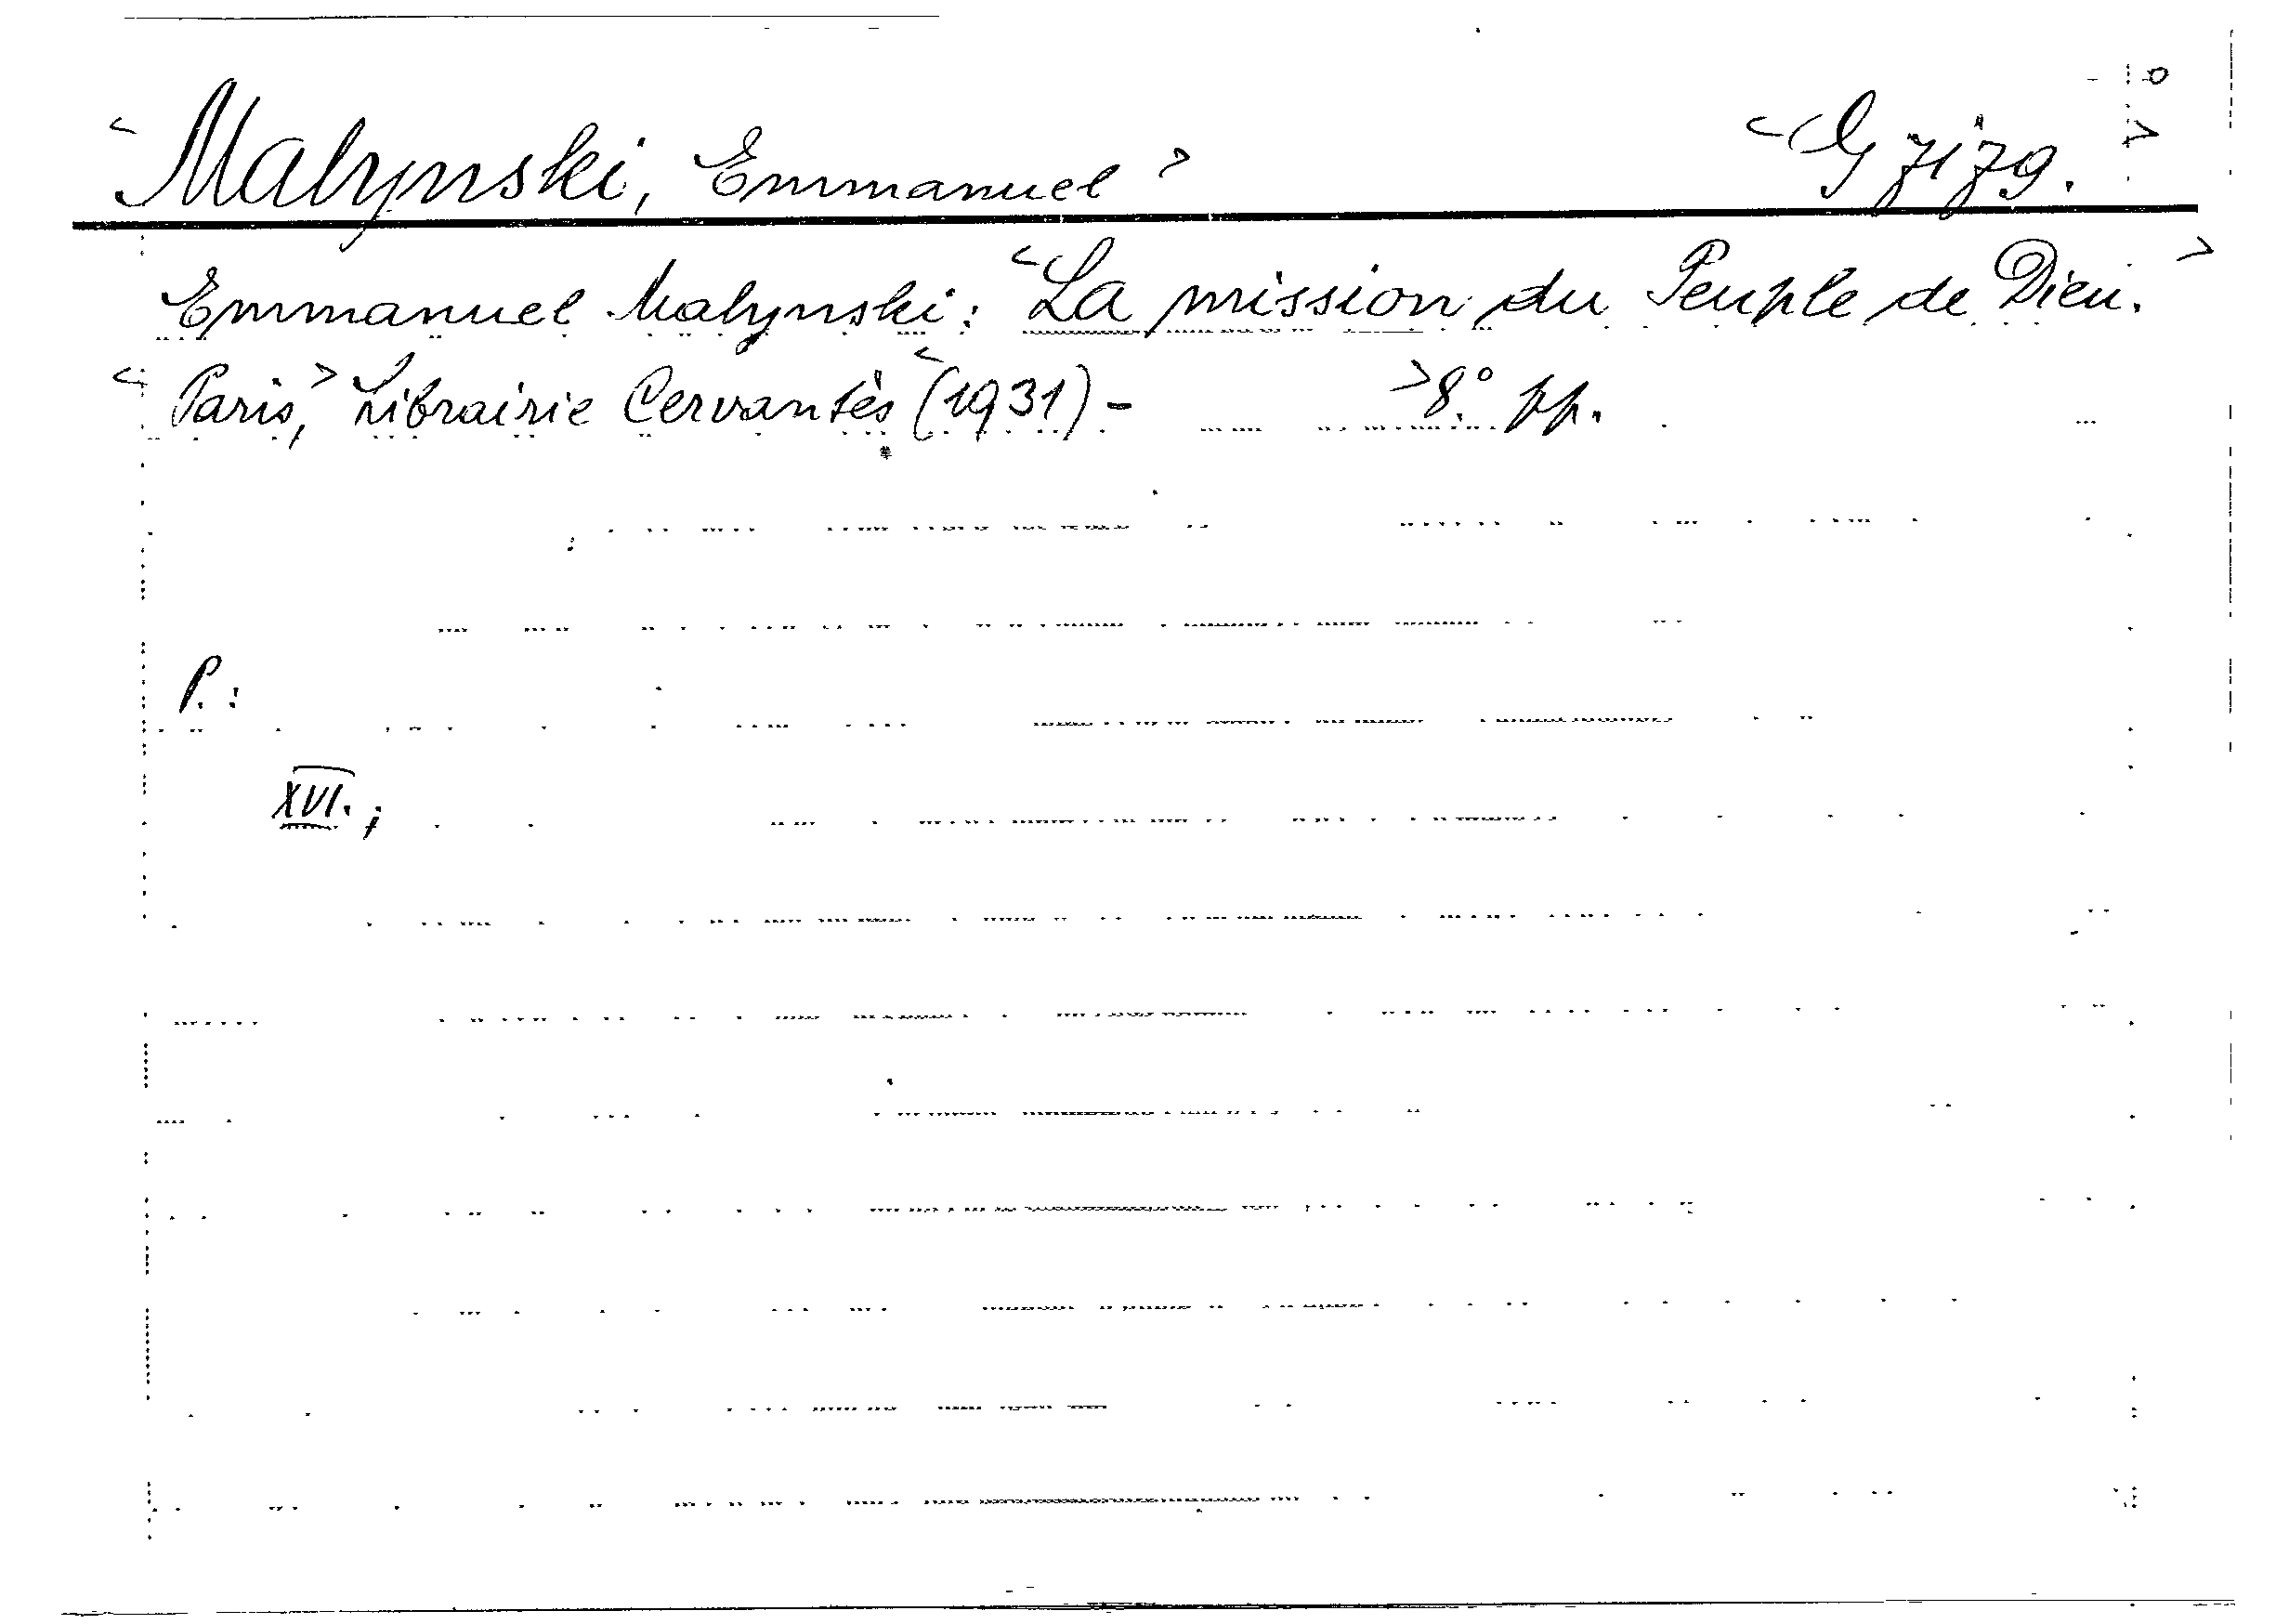 <Malynski, Emmanuel> <G 7179.>
Emmanuel Malynski: <La mission du Peuple de Dieu.>
<Paris,> Librairie Cervantès <(1931) - >8.° pp.
P.:
XVI.;